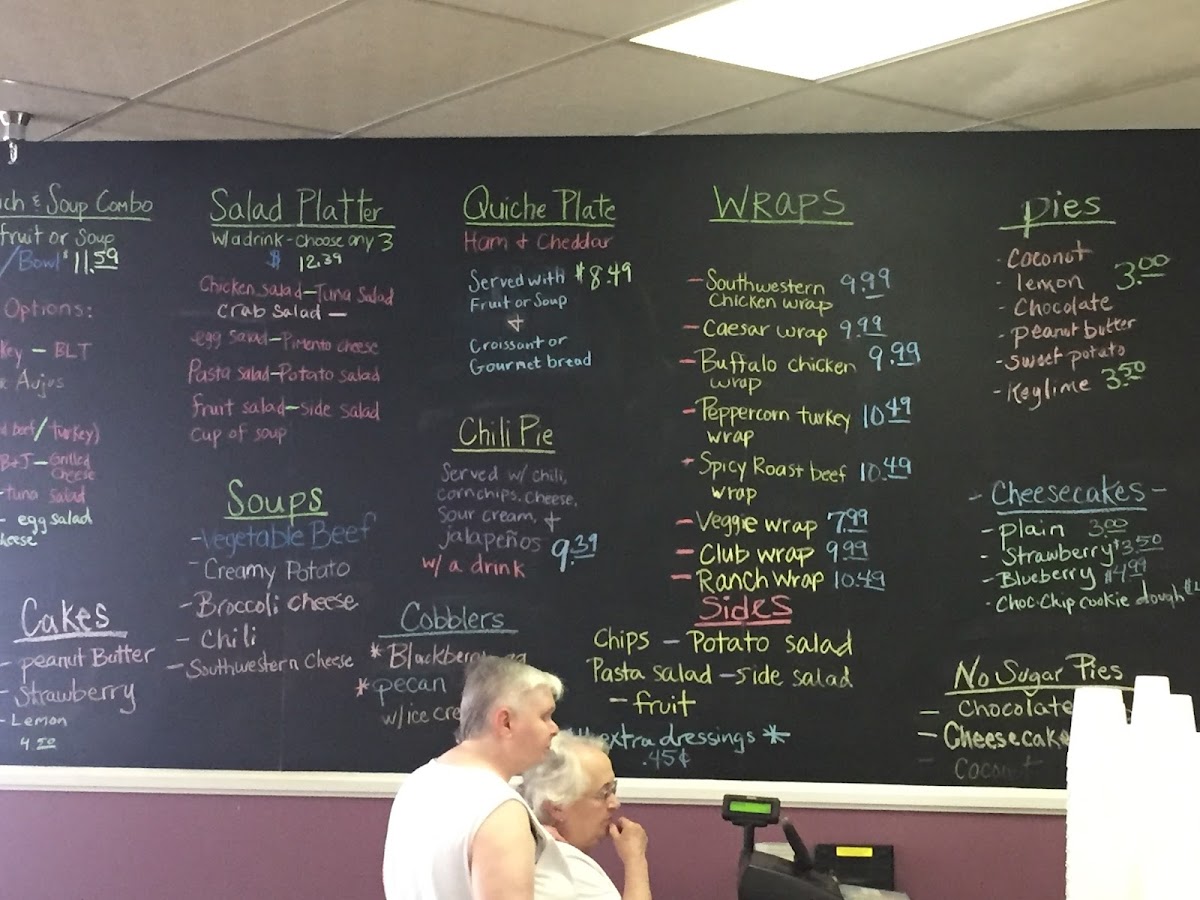 & Soup Combo
fruit or Soup
/Bowl $11.59
Options:
- BLT
Aujus
beef/turkey)
B+J - Grilled
Cheese
-tuna salad
- egg salad
Cakes
- peanut Butter
- Strawberry
- Lemon
4.50
Salad Platter
W/a drink - choose any 3
$ 12.39
Chicken salad - Tuna Salad
crab Salad -
egg salad - Pimento cheese
Pasta salad - Potato salad
fruit salad - side salad
cup of soup
Soups
- Vegetable Beef
- Creamy Potato
- Broccoli cheese
- Chili
- Southwestern Cheese
Quiche Plate
Ham + Cheddar
Served with $8.49
Fruit or Soup
+
Croissant or
Gourmet bread
Chili Pie
Served w/ chili,
cornchips, cheese,
sour cream, +
jalapeños 9.39
w/ a drink
Cobblers
* Blackberry
* pecan
w/ice
WRAPS
- Southwestern 9.99
Chicken wrap
- Caesar wrap 9.99
- Buffalo chicken 9.99
wrap
- Peppercorn turkey 10.49
wrap
- Spicy Roast beef 10.49
wrap
- Veggie wrap 7.99
- Club wrap 9.99
- Ranch wrap 10.49
Sides
Chips - Potato salad
Pasta salad - side salad
- fruit
extra dressings *
.45¢
pies
- Coconut
- lemon 3.00
- Chocolate
- peanut butter
- sweet potato
- Keylime 3.50
- Cheesecakes -
- plain 3.00
- Strawberry $3.50
- Blueberry $4.99
- Choc. Chip cookie dough
No Sugar Pies
- Chocolate
- Cheesecake
- Coconut